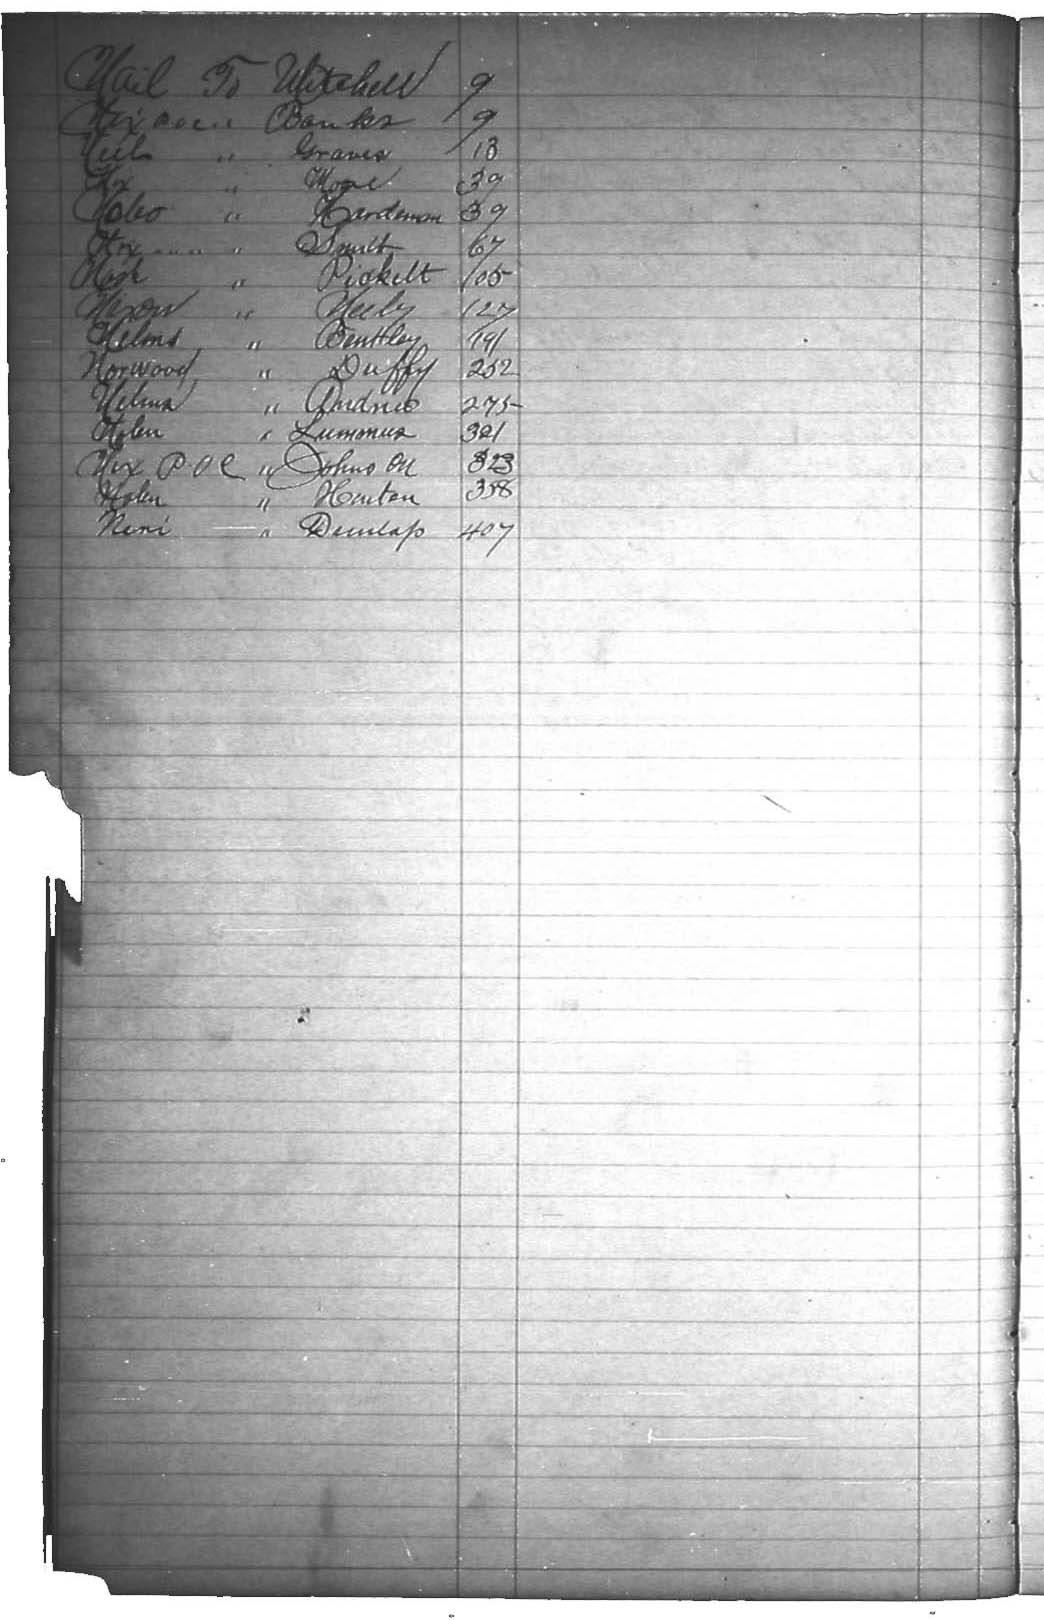 Nail To Mitchell 9
Nix " Banks 9
Neel " Graves 13
Nix " Moore 39
Nabo " Hardeman 39
Nix " Smith 67
" Pickett 105
Nixon " Neely 127
Nelms " Bentley 191
Norwood " Duffy 252
Nelms " Andrews 275
Nolen " Lummus 321
Nix P O C " Johnson 323
Nolen " Hunton 358
Neni " Dunlap 407